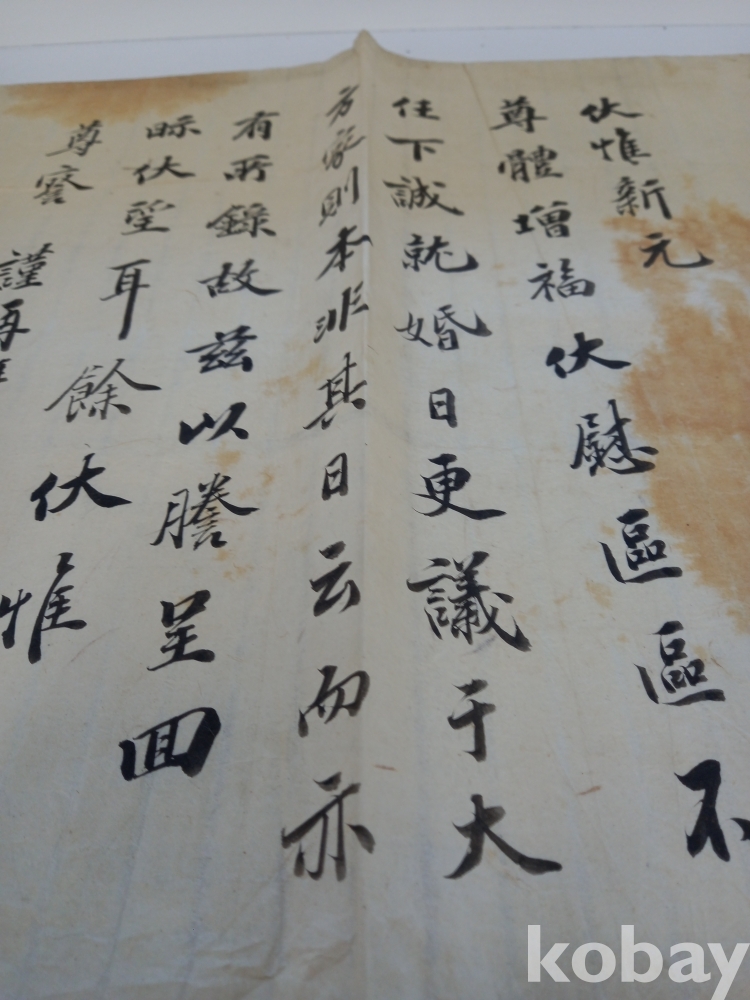 伏惟新元
尊體增福伏慰區區不
任下誠就婚日更議于大
方家則本非其日云而亦
有所錄故茲以謄呈回
眎伏望耳餘伏惟
尊察
謹再
kobay